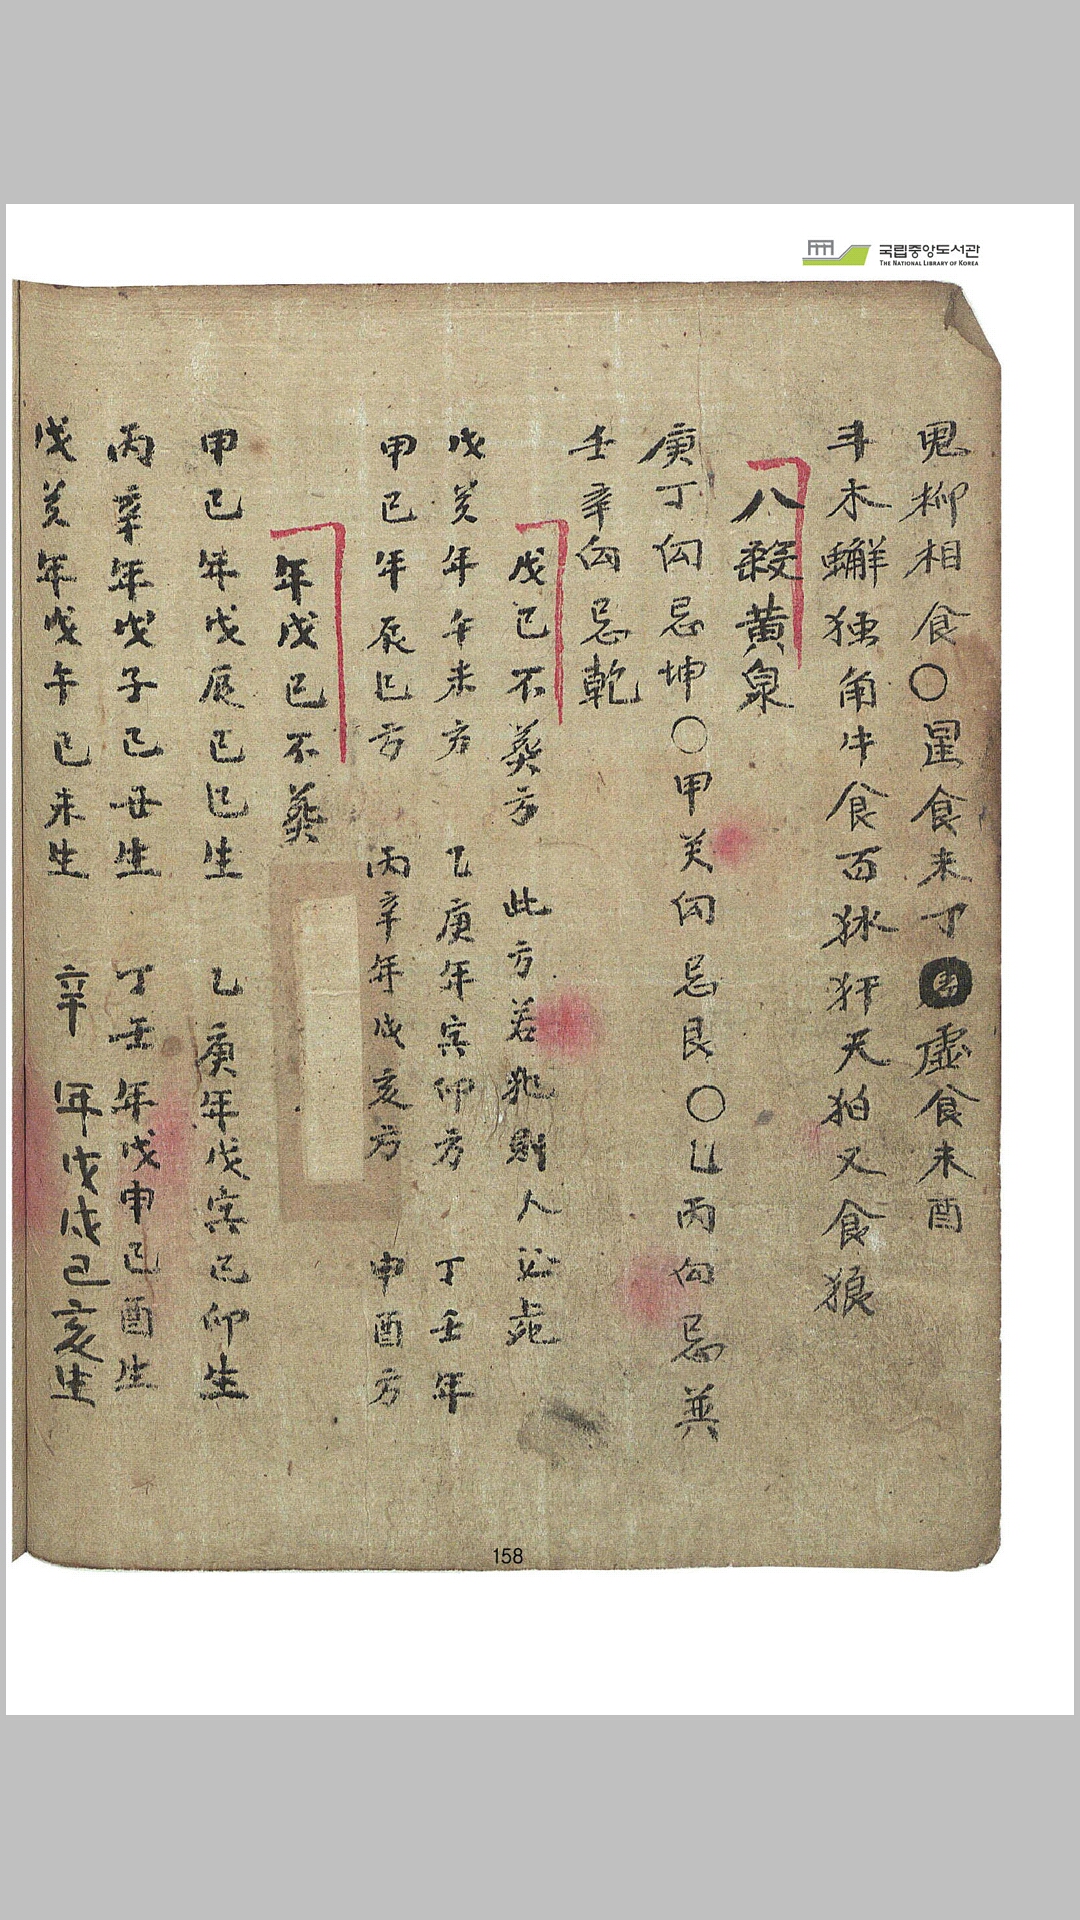 국립중앙도서관
THE NATIONAL LIBRARY OF KOREA
鬼柳相食〇星食未丁 虛食未酉
斗木蠏独角牛食百狱犴天狛又食狼
八殺黃泉
庚丁向忌坤〇甲癸向忌艮〇乙丙向忌巽
壬辛向忌乾
戊己不葬方 此方若犯則人必死
戊癸年午未方 乙庚年寅卯方 丁壬年
甲己年辰巳方 丙辛年戌亥方 申酉方
年戊己不葬
甲己年戊辰己巳生 乙庚年戊寅己卯生
丙辛年戊子己丑生 丁壬年戊申己酉生
戊癸年戊午己未生 辛年戊戌己亥生
158